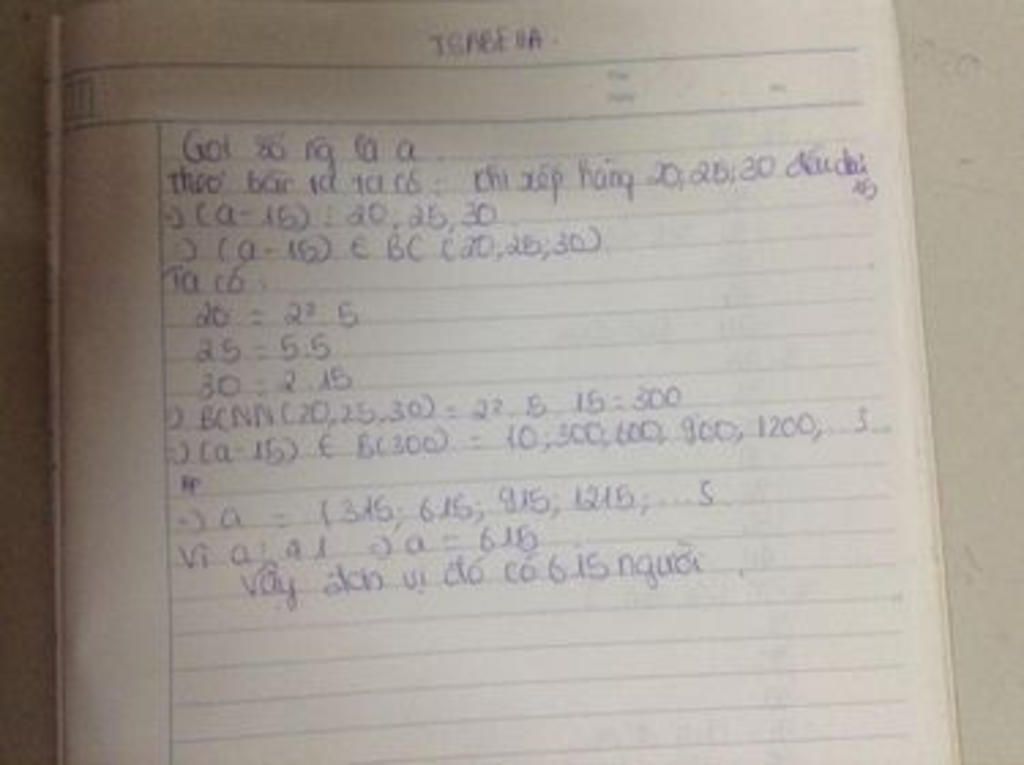 Gọi số ng là a.
Theo bài ra ta có: khi xếp hàng 20; 25; 30 đều dư
15
=> (a - 15) ⋮ 20, 25, 30
=> (a - 15) ∈ BC (20, 25, 30)
Ta có:
20 = 2² . 5
25 = 5.5
30 = 2 . 15
=> BCNN (20, 25, 30) = 2² . 5 . 15 = 300
=> (a - 15) ∈ B(300) = {0, 300, 600, 900, 1200, ... }
=> a = { 315; 615; 915; 1215; ... }
Vì a ⋮ 41 => a = 615
Vậy đơn vị đó có 615 người.